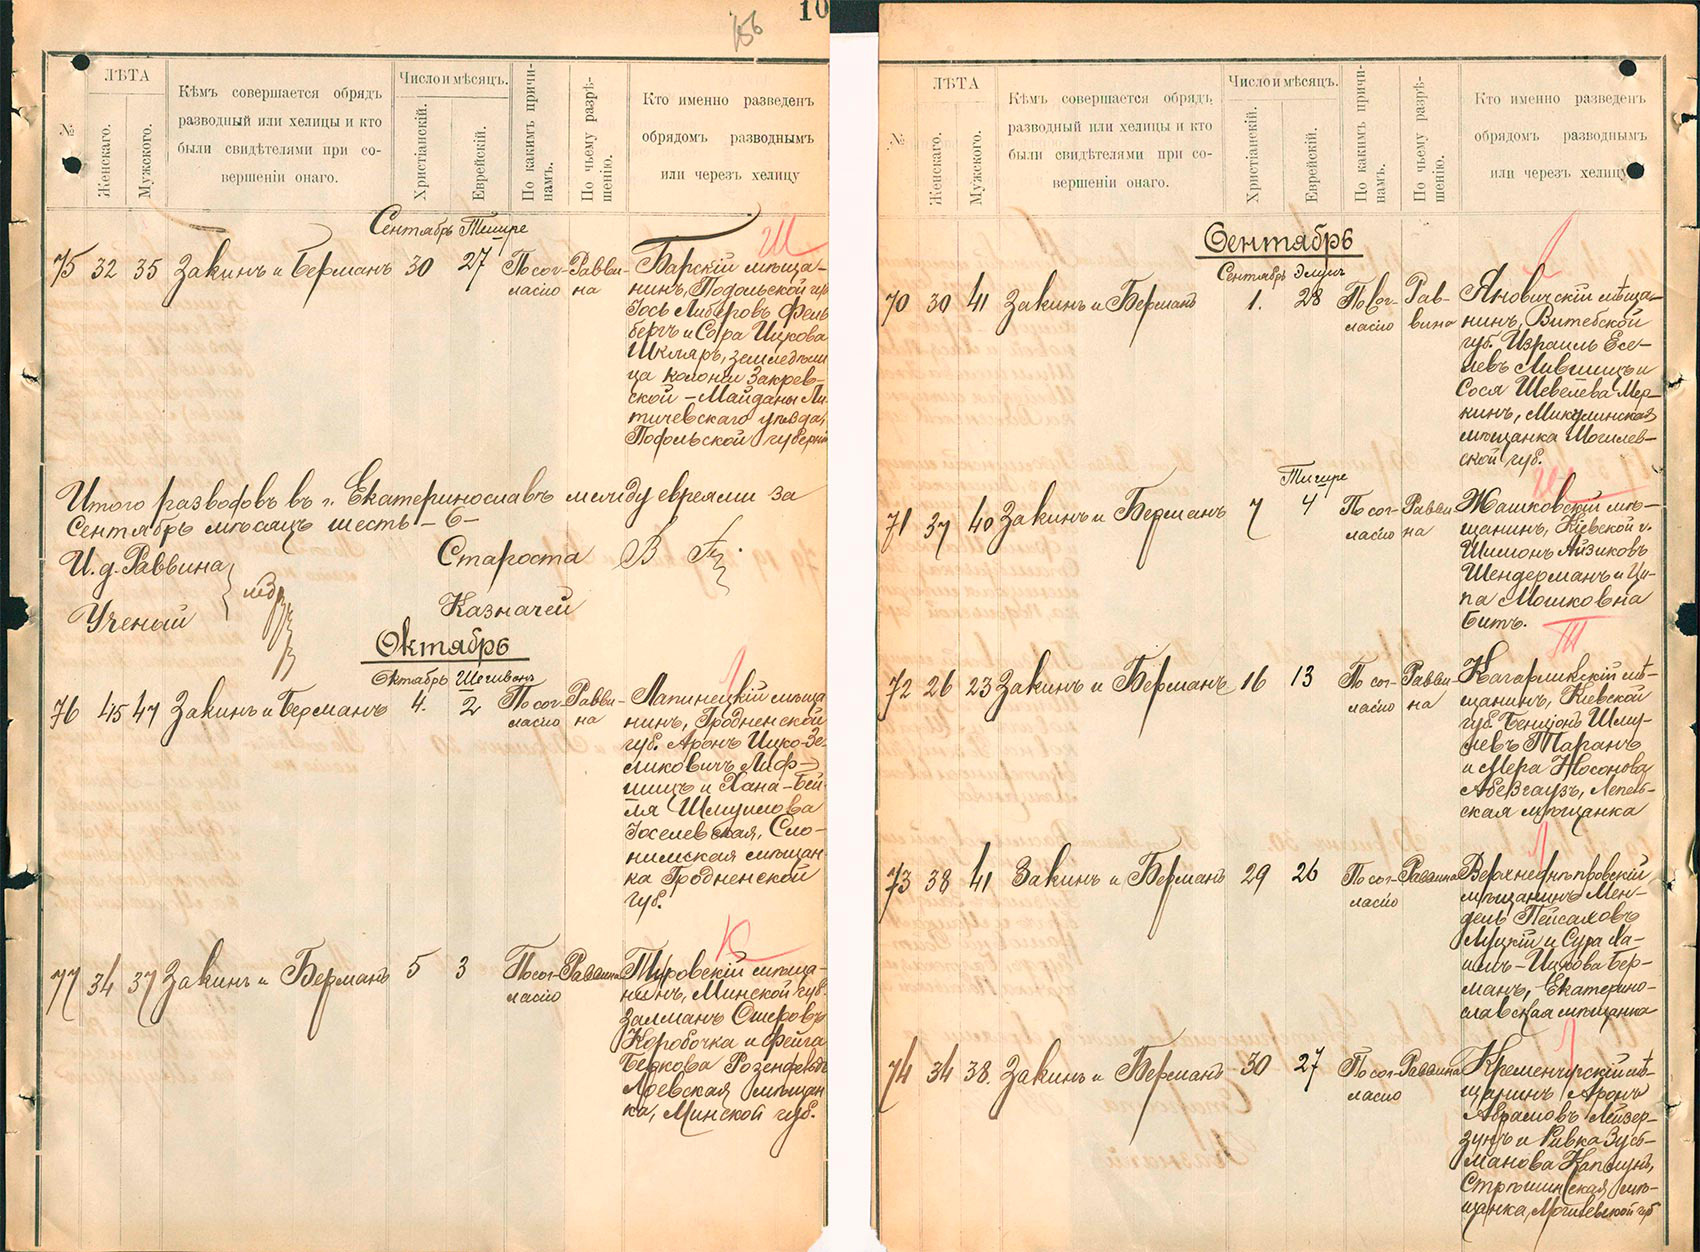 156
10
№
ЛѢТА
Женскаго.
Мужского.
Кѣмъ совершается обрядъ
разводный или хелицы и кто
были свидѣтелями при со-
вершеніи онаго.
Число и мѣсяцъ.
Христіанскій.
Еврейскій.
По какимъ причи-
намъ.
По чьему разрѣ-
шенію.
Кто именно разведенъ
обрядомъ разводнымъ
или черезъ хелицу
Сентябрь Тишре
Ш
75 32 35 Закинъ и Берманъ 30 27 По сог- Равви- Барскій мѣща-
ласію на нинъ, Подольской губ
Іось Либеровъ Фель
бергъ и Сура Ицкова
Шкляръ, земледѣли
ца колоніи Закрев-
ской - Майданы Ли
тичевскаго уѣзда,
Подольской губерніи
Итого разводовъ въ г. Екатеринославѣ между евреями за
Сентябрь мѣсяцъ шесть - 6 -
И. д. Раввина Староста
Ученый Казначей
Октябрь
Октябрь Шешвонъ
76 45 47 Закинъ и Берманъ 4. 2 По сог- Равви- Лапинецкій мѣща
ласію на нинъ, Гродненской
губ. Аронъ Ицко-Зе-
ликовичъ Лиф-
шицъ и Хана-Бей-
ля Шмуилова
Іоселевская, Сло-
нимская мѣщан-
ка Гродненской
губ.
К
77 34 37 Закинъ и Берманъ 5 3 По сог- Раввина Туровскій мѣща-
ласію нинъ, Минской губ.
Залманъ Ошеровъ
Коробочка и Фейга
Беркова Розенфельдъ
Лоевская мѣщан
ка, Минской губ.
№
ЛѢТА
Женскаго.
Мужского.
Кѣмъ совершается обрядъ
разводный или хелицы и кто
были свидѣтелями при со-
вершеніи онаго.
Число и мѣсяцъ.
Христіанскій.
Еврейскій.
По какимъ причи-
намъ.
По чьему разрѣ-
шенію.
Кто именно разведенъ
обрядомъ разводнымъ
или черезъ хелицу
Сентябрь
Сентябрь Элулъ
Л
70 30 41 Закинъ и Берманъ 1. 28 По сог- Рав- Яновичскій мѣща-
ласію вина нинъ, Витебской
губ. Израиль Есе-
левъ Лившицъ и
Сося Шевелева Мер-
кинъ, Микулинская
мѣщанка Могилев-
ской губ.
Тишре
Ш
71 37 40 Закинъ и Берманъ 7 4 По сог- Равви Жашковскій мѣ-
ласію на щанинъ, Кіевской г.
Шимонъ Айзиковъ
Шендерманъ и Ци-
па Мошковна
Битъ.
Т
72 26 23 Закинъ и Берманъ 16 13 По сог- Равви- Кагарликскій мѣ-
ласію на щанинъ, Кіевской
губ. Беніюнъ Шму-
левъ Таранъ
и Мера Носонова
Абезгаузъ, Лепель-
ская мѣщанка
Л
73 38 41 Закинъ и Берманъ 29 26 По сог- Раввина Верхнеднѣпровскій
ласію мѣщанинъ Мен-
дель Пейсаховъ
Луцкій и Сура Ла-
Ицкова Бер-
манъ, Екатерино-
славская мѣщанка
Л
74 34 38. Закинъ и Берманъ 30 27 По сог- Раввина Кременчугскій мѣ-
ласію щанинъ Аронъ
Абрамовъ Лейзер-
зунъ и Ривка Зусь-
манова Каплунъ,
Стрѣшинская мѣ-
щанка, Могилевской губ